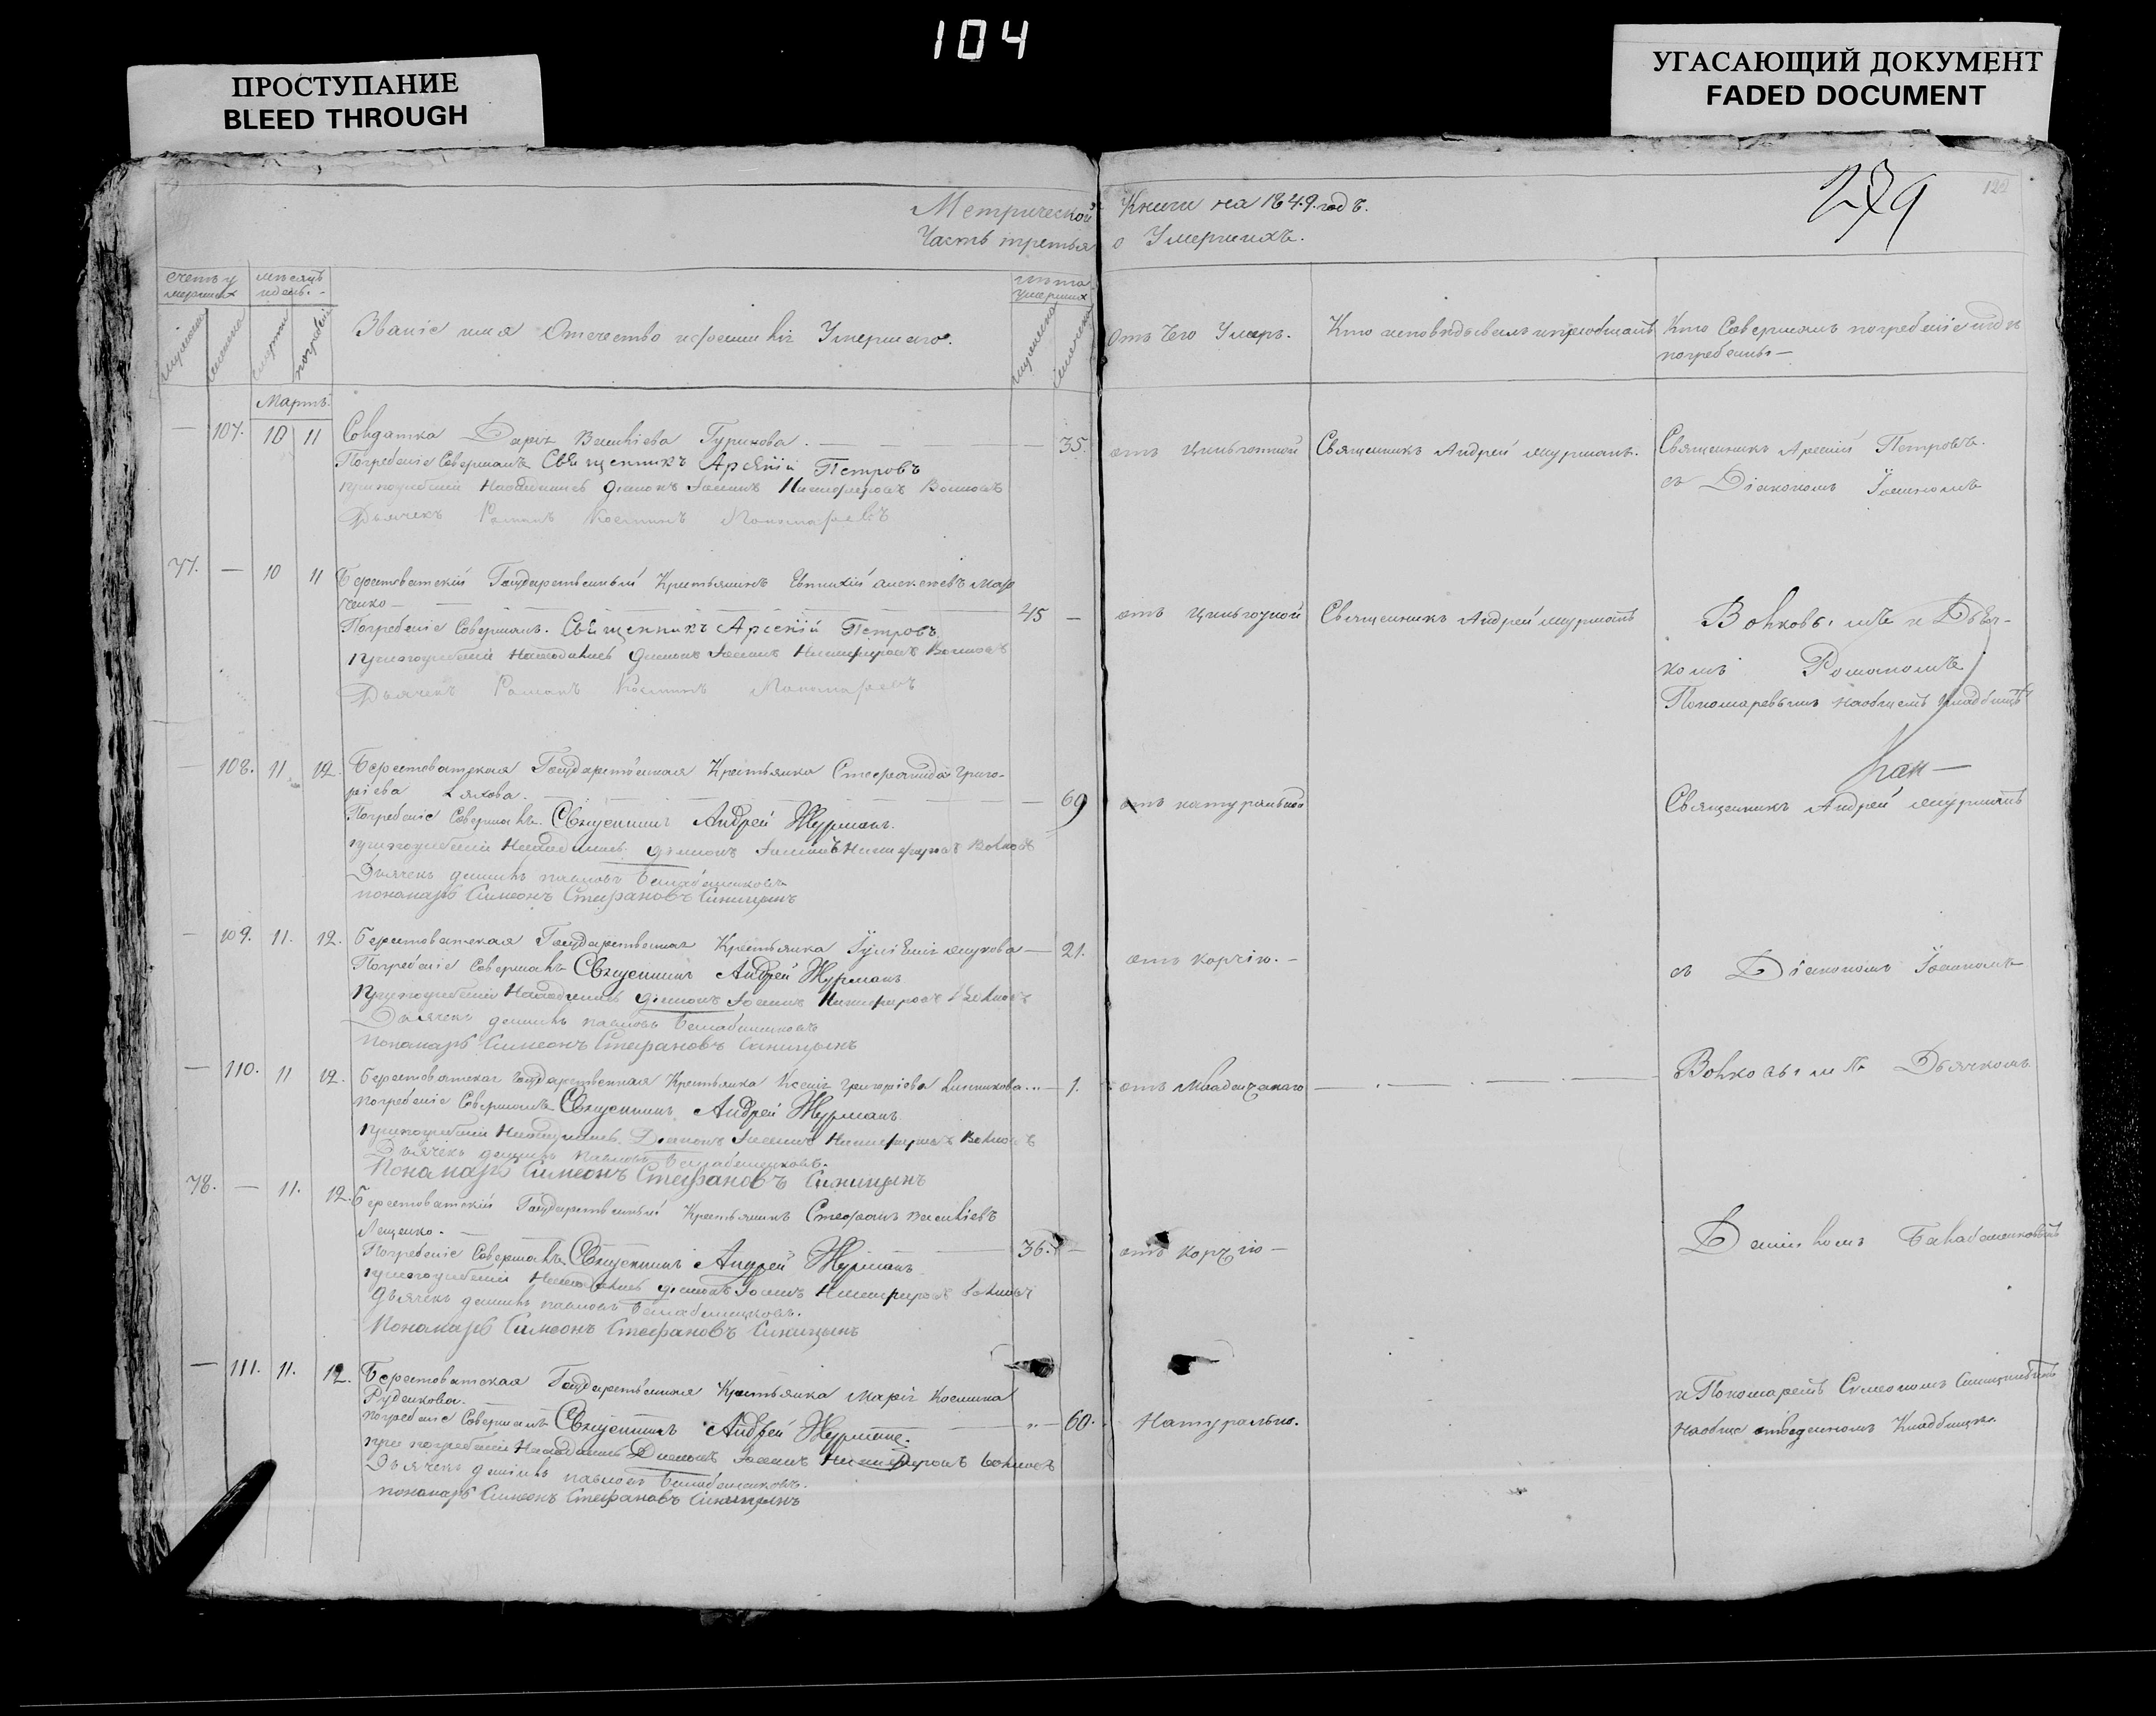 104
ПРОСТУПАНИЕ
BLEED THROUGH
УГАСАЮЩИЙ ДОКУМЕНТ
FADED DOCUMENT
279
122
Метрической Книги на 1849. годъ.
Часть третья о Умершихъ.
Званіе имя Отечество Умершаго.
Отъ чего Умеръ.
Кто исповѣдывалъ и приобщалъ
Кто Совершалъ погребеніе и гдѣ
погребены
Мартъ.
107. 10 11 Солдатка Дарія Василіева Гуринова. 35. отъ цынготной Священникъ Андрей Журманъ. Священникъ Арсеній Петровъ.
Погребеніе Совершалъ Священникъ Арсеній Петровъ
съ Діакономъ Іоанномъ
при погребеніи Находились діаконъ Іоаннъ Никифоровъ Волковъ
Дьячекъ Романъ Косминъ Пономаревъ
77. 10 11 Берестоватскій Государственный Крестьянинъ Евтихій Алексѣевъ Мар
ченко 45 отъ цынготной Священникъ Андрей Журманъ Волковымъ и Дьяч-
Погребеніе Совершалъ. Священникъ Арсеній Петровъ
комъ Романомъ
при погребеніи Находились діаконъ Іоаннъ Никифоровъ Волковъ
Дьячекъ Романъ Косминъ Пономаревъ
Пономаревымъ на общемъ кладбищѣ
108. 11 12. Берестоватская Государственная Крестьянка Стефанида Григо-
ріева Ляхова. 69 отъ натуральной Священникъ Андрей Журманъ
Погребеніе Совершалъ Священникъ Андрей Журманъ.
при погребеніи Находились діаконъ Іоаннъ Никифоровъ Волковъ
Дьячекъ Даніилъ Павловъ Балабаненковъ
пономарь Симеонъ Стефановъ Синицынъ
109. 11. 12. Берестоватская Государственная Крестьянка Жукова 21. отъ корчію. съ Діакономъ Іоанномъ
Погребеніе Совершалъ Священникъ Андрей Журманъ
При погребеніи Находились діаконъ Іоаннъ Никифоровъ Волковъ
Дьячекъ Даніилъ Павловъ Балабаненковъ
пономарь Симеонъ Стефановъ Синицынъ
110. 11 12. Берестоватская Государственная Крестьянка Ксенія Григоріева 1. отъ Младенческаго Волковымъ Дьячкомъ
погребеніе Совершалъ Священникъ Андрей Журманъ
при погребеніи Находились Діаконъ Іоаннъ Никифоровъ Волковъ
Дьячекъ Даніилъ Павловъ Балабаненковъ.
Пономарь Симеонъ Стефановъ Синицынъ
78. 11. 12. Берестоватскій Государственный Крестьянинъ Стефанъ Василіевъ
Лещенко. 36. отъ корчію Даніиломъ Балабаненковымъ
Погребеніе Совершалъ Священникъ Андрей Журманъ
при погребеніи Находились діаконъ Іоаннъ Никифоровъ Волковъ
Дьячекъ Даніилъ Павловъ Балабаненковъ.
Пономарь Симеонъ Стефановъ Синицынъ
111. 11. 12. Берестоватская Государственная Крестьянка Марія Космина
Руденкова. 60. Натурально. и Пономаремъ Симеономъ Синицынымъ
погребеніе Совершалъ Священникъ Андрей Журманъ.
на обще отведенномъ Кладбищѣ.
при погребеніи Находились Діаконъ Іоаннъ Никифоровъ Волковъ
Дьячекъ Даніилъ Павловъ Балабаненковъ.
пономарь Симеонъ Стефановъ Синицынъ